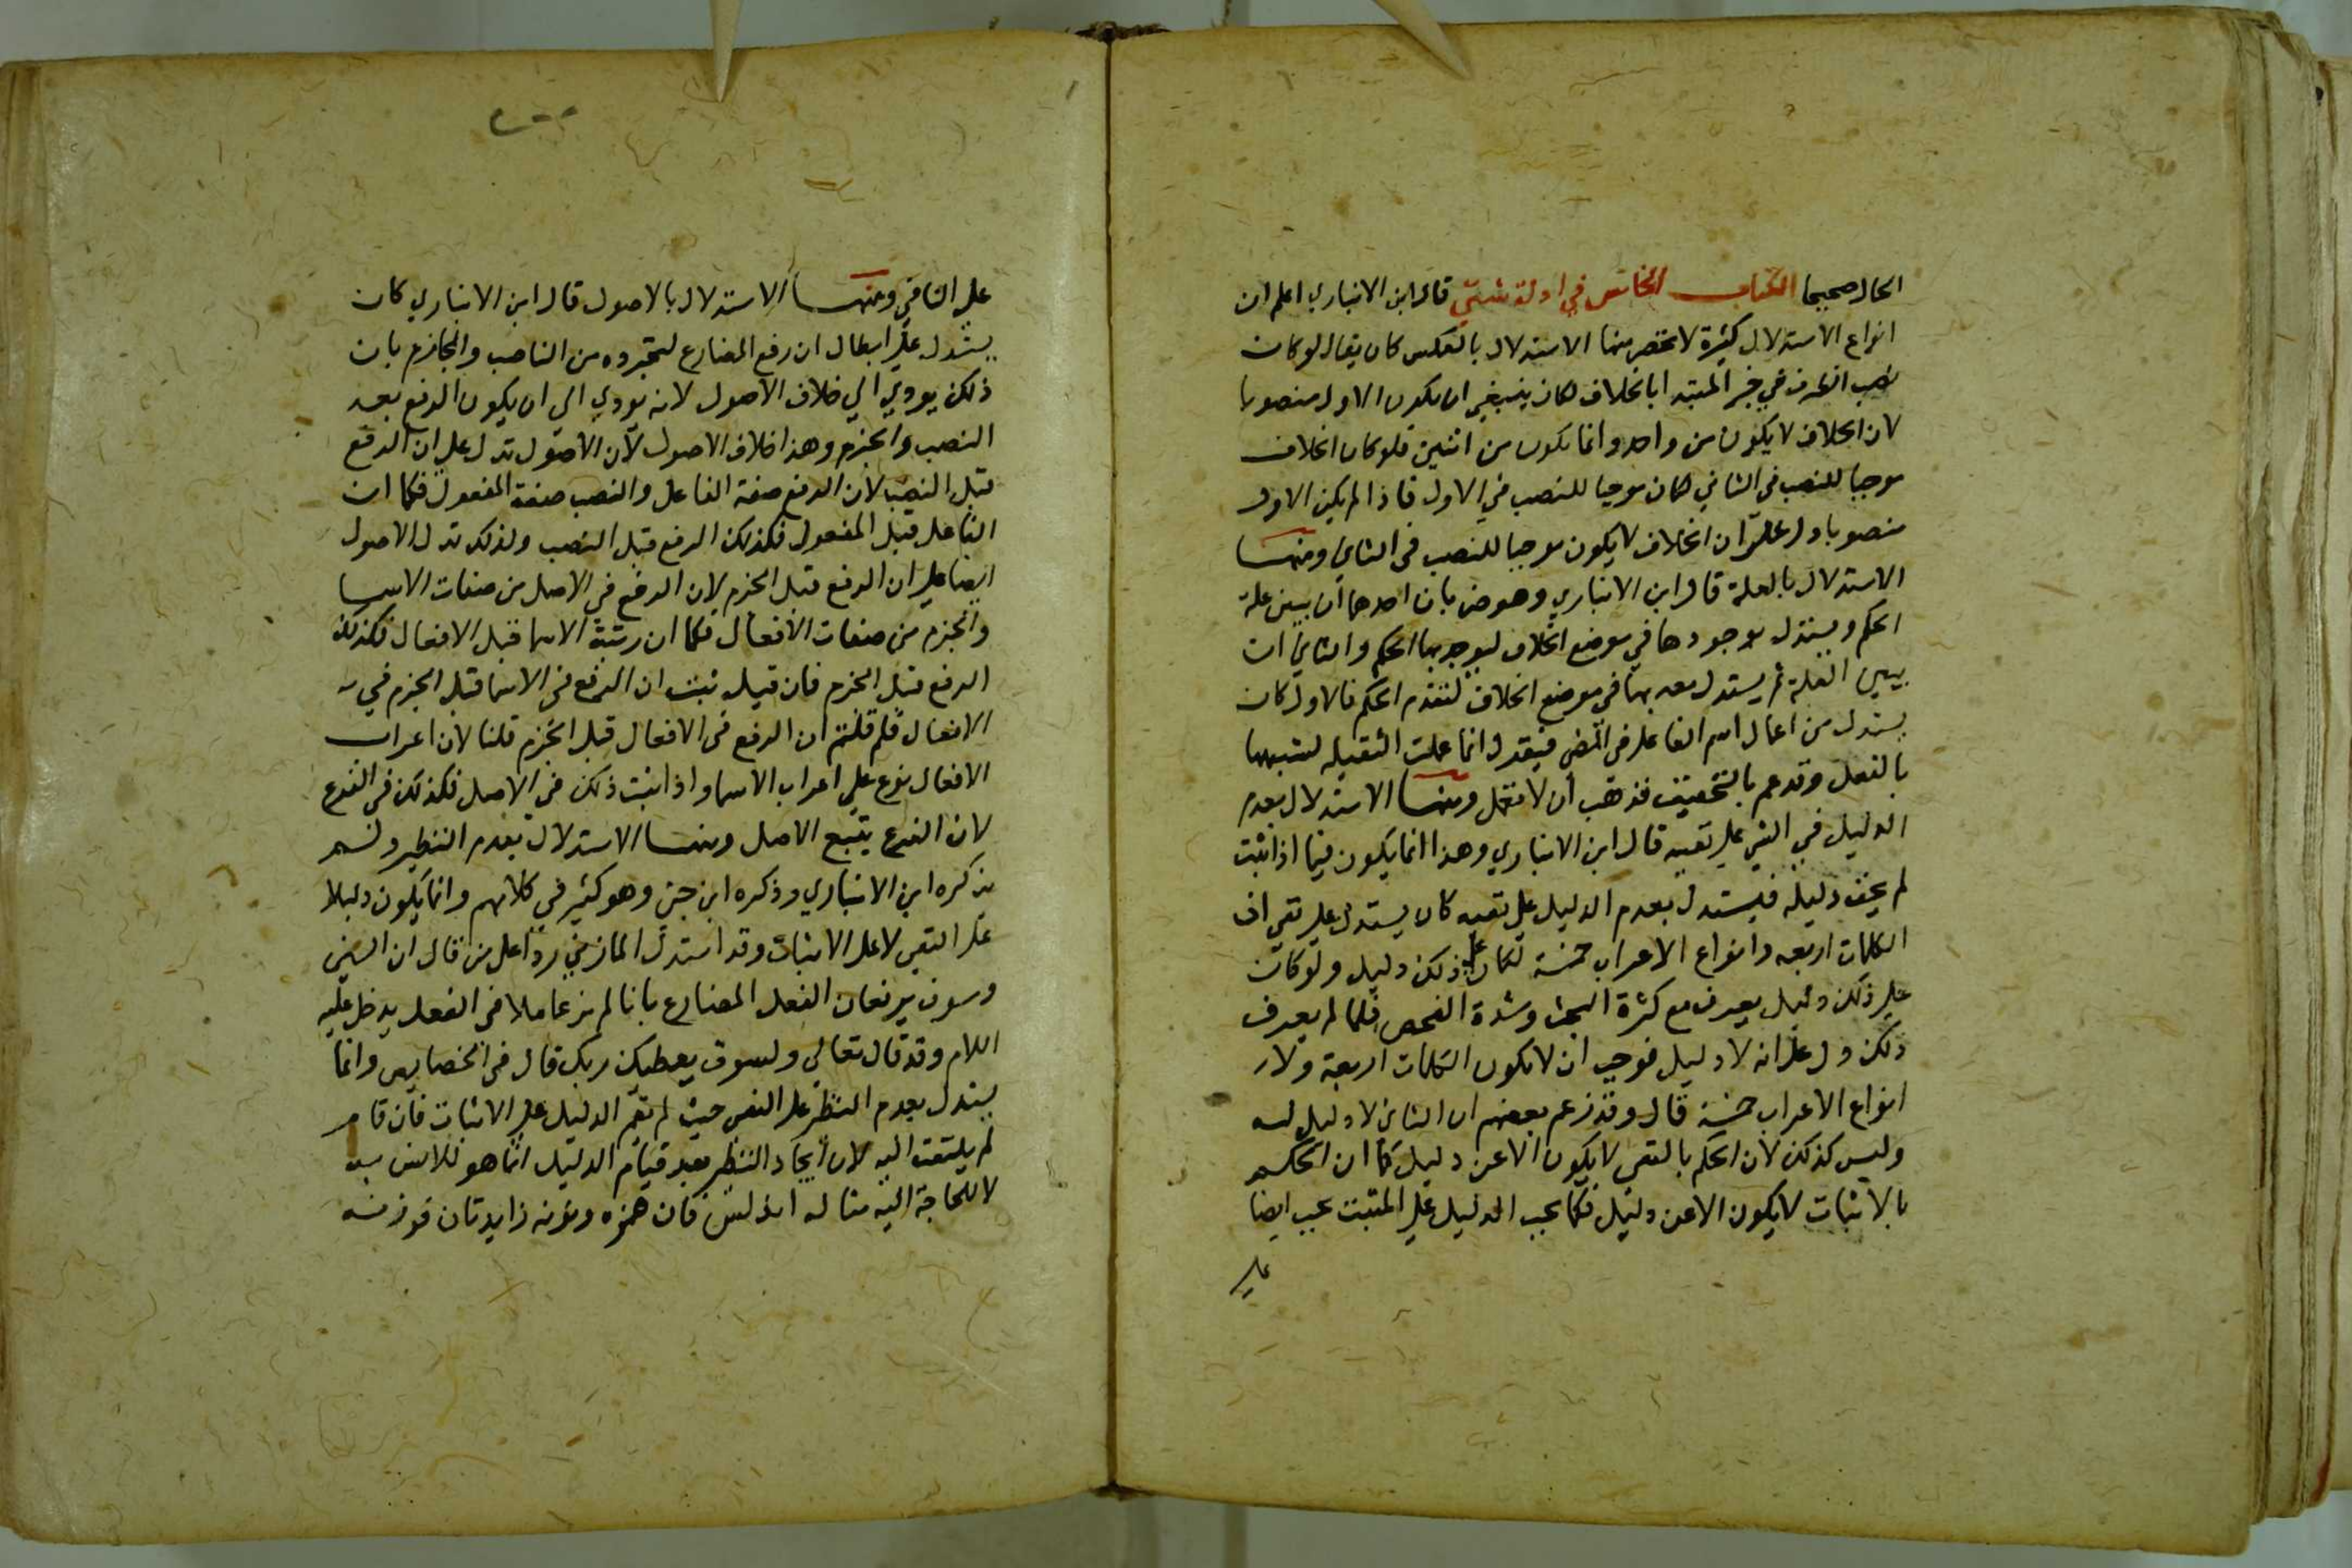 الحال صحيحا الكتاب الخامس في ادلة شتي قال ابن الانباري اعلم ان
انواع الاستدلال كثيرة لا تحصر منها الاستدلال بالعكس كان يقال لو كان
نصب الظرف في خبر المبتدا بالخلاف لكان ينبغي ان يكون الاول منصوبا
لان الخلاف لا يكون من واحد وانما يكون من اثنين فلو كان الخلاف
موجبا للنصب في الثاني لكان موجبا للنصب في الاول فاذا لم يكن الاول
منصوبا دل علي ان الخلاف لا يكون موجبا للنصب في الثاني ومنها
الاستدلال بالعلة قال ابن الانباري وهو ضربان احدهما ان يبين علة
الحكم ويستدل بوجودها في موضع الخلاف ليوجد بها الحكم والثاني ان
يبين العلة ثم يستدل بعدمها في موضع الخلاف لتعدم الحكم فالاول كان
يستدل من اعمال اسم الفاعل في المضي فيقول انما عملت الثقيله لشبهها
بالفعل وقد عدم بالتخفيف فذهب ان لا تعمل ومنها الاستدلال بعدم
الدليل في الشي علي نفيه قال ابن الانباري وهذا انما يكون فيما اذا ثبت
لم يخف دليله فيستدل بعدم الدليل علي نفيه كان يستدل علي نفي ان
الكلمات اربعه وانواع الاعراب خمسة لكان علي ذلك دليل ولو كان
علي ذلك دليل يعرف مع كثرة البحث وشدة الفحص فلما لم يعرف
ذلك دل علي انه لا دليل فوجب ان لا يكون الكلمات اربعة ولا
انواع الاعراب خمسة قال وقد زعم بعضهم ان النافي لا دليل له
وليس كذلك لان الحكم بالنفي لا يكون الا عن دليل كما ان الحكم
بالاثبات لا يكون الا عن دليل فكما يجب الدليل علي المثبت يجب ايضا
علي
علي النافي ومنها الاستدلال بالاصول قال ابن الانباري كان
يستدل علي ابطال ان رفع المضارع لتجرده من الناصب والجازم بان
ذلك يودي الي خلاف الاصول لانه يودي الي ان يكون الرفع بعد
النصب والجزم وهذا خلاف الاصول لان الاصول تدل علي ان الرفع
قبل النصب لان الرفع صفة الفاعل والنصب صفة المفعول فكما ان
الفاعل قبل المفعول فكذلك الرفع قبل النصب وكذلك تدل الاصول
ايضا علي ان الرفع قبل الجزم لان الرفع في الاصل من صفات الاسما
والجزم من صفات الافعال فكما ان رتبة الاسما قبل الافعال فكذلك
الرفع قبل الجزم فان قيل ثبت ان الرفع في الاسما قبل الجزم في
الافعال فلم قلتم ان الرفع في الافعال قبل الجزم قلنا لان اعراب
الافعال فرع علي اعراب الاسما واذا ثبت ذلك في الاصل فكذلك في الفرع
لان الفرع يتبع الاصل ومنها الاستدلال بعدم النظير ولم
يذكره ابن الانباري وذكره ابن جني وهو كثير في كلامهم وانما يكون دليلا
علي النفي لا علي الاثبات وقد استدل المازني ردا علي من قال ان السين
وسوف يرفعان الفعل المضارع بانا لم نر عاملا في الفعل يدخل عليه
اللام وقد قال تعالي ولسوف يعطيك ربك قال في الخصايص وانما
يستدل بعدم النظير علي النفي حيث لم تقم الدليل علي الاثبات فان قام
لم يلتفت اليه لان ايجاد النظير بعد قيام الدليل انما هو للانس به
لا للحاجة اليه مثاله اندلس فان همزه ونونه زايدتان فوزنه